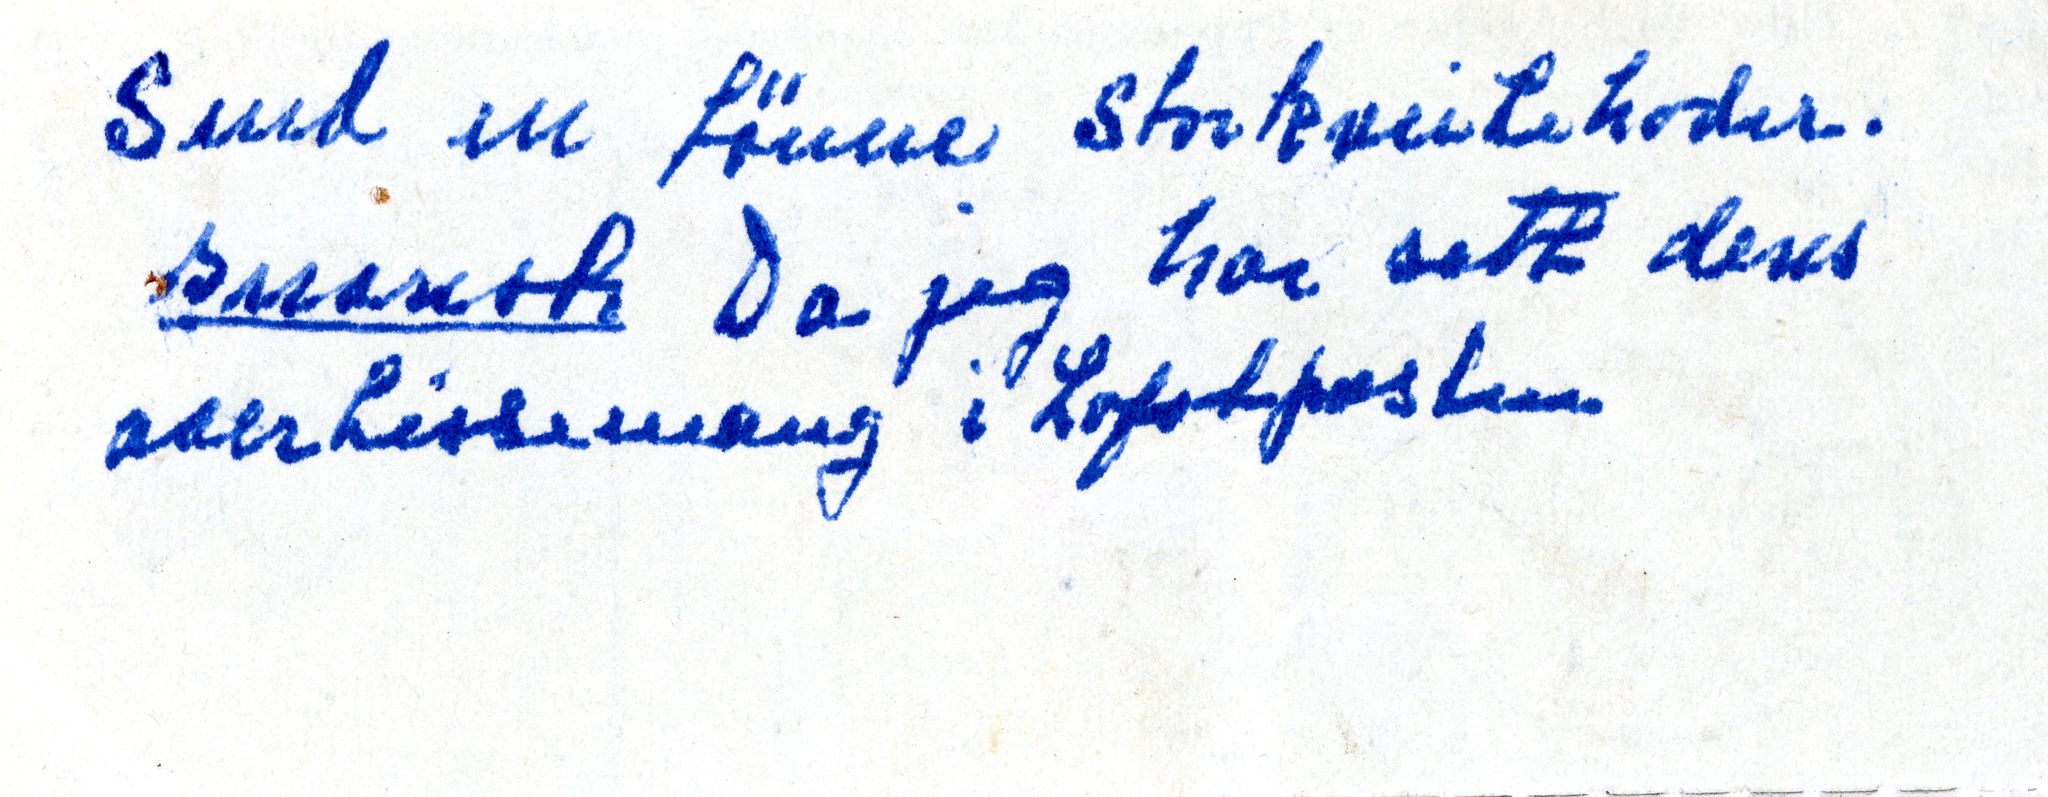 Send en fönne Storkvinkehoder.
snarest Da jeg har sett dens
averlissemang i Lofotposten